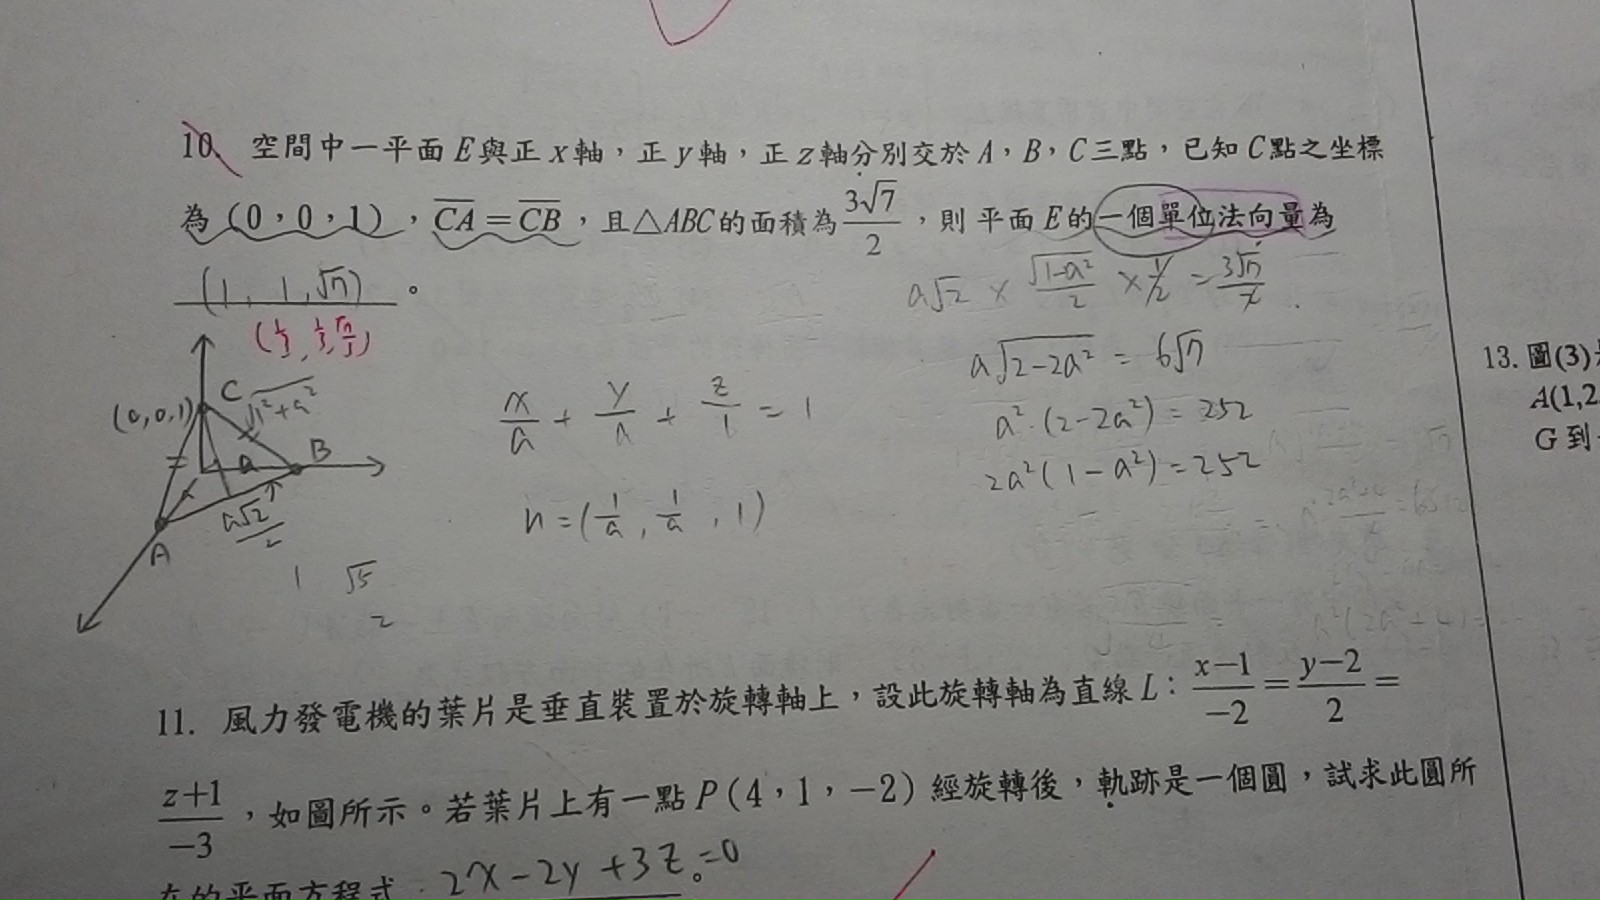 10. 空間中一平面 E 與正 x 軸，正 y 軸，正 z 軸分別交於 A，B，C 三點，已知 C 點之坐標
為 (0，0，1)，CA = CB，且△ABC 的面積為 3√7/2，則平面 E 的一個單位法向量為
(1, 1, √7)。
(1/3, 1/3, √7/3)
a√2 × √1-a²/2 × 1/2 = 3√7/2
a√2-2a² = 6√7
a²·(2-2a²) = 252
2a²(1-a²) = 252
x/a + y/a + z/1 = 1
n = (1/a, 1/a, 1)
C
(0,0,1)
√1²+a²
a
B
a√2/2
A
1 √5
2
13. 圖(3)
A(1,2
G 到
11. 風力發電機的葉片是垂直裝置於旋轉軸上，設此旋轉軸為直線 L：x-1/-2 = y-2/2 =
z+1/-3，如圖所示。若葉片上有一點 P(4，1，-2) 經旋轉後，軌跡是一個圓，試求此圓所
在的平面方程式 2x-2y+3z=0。